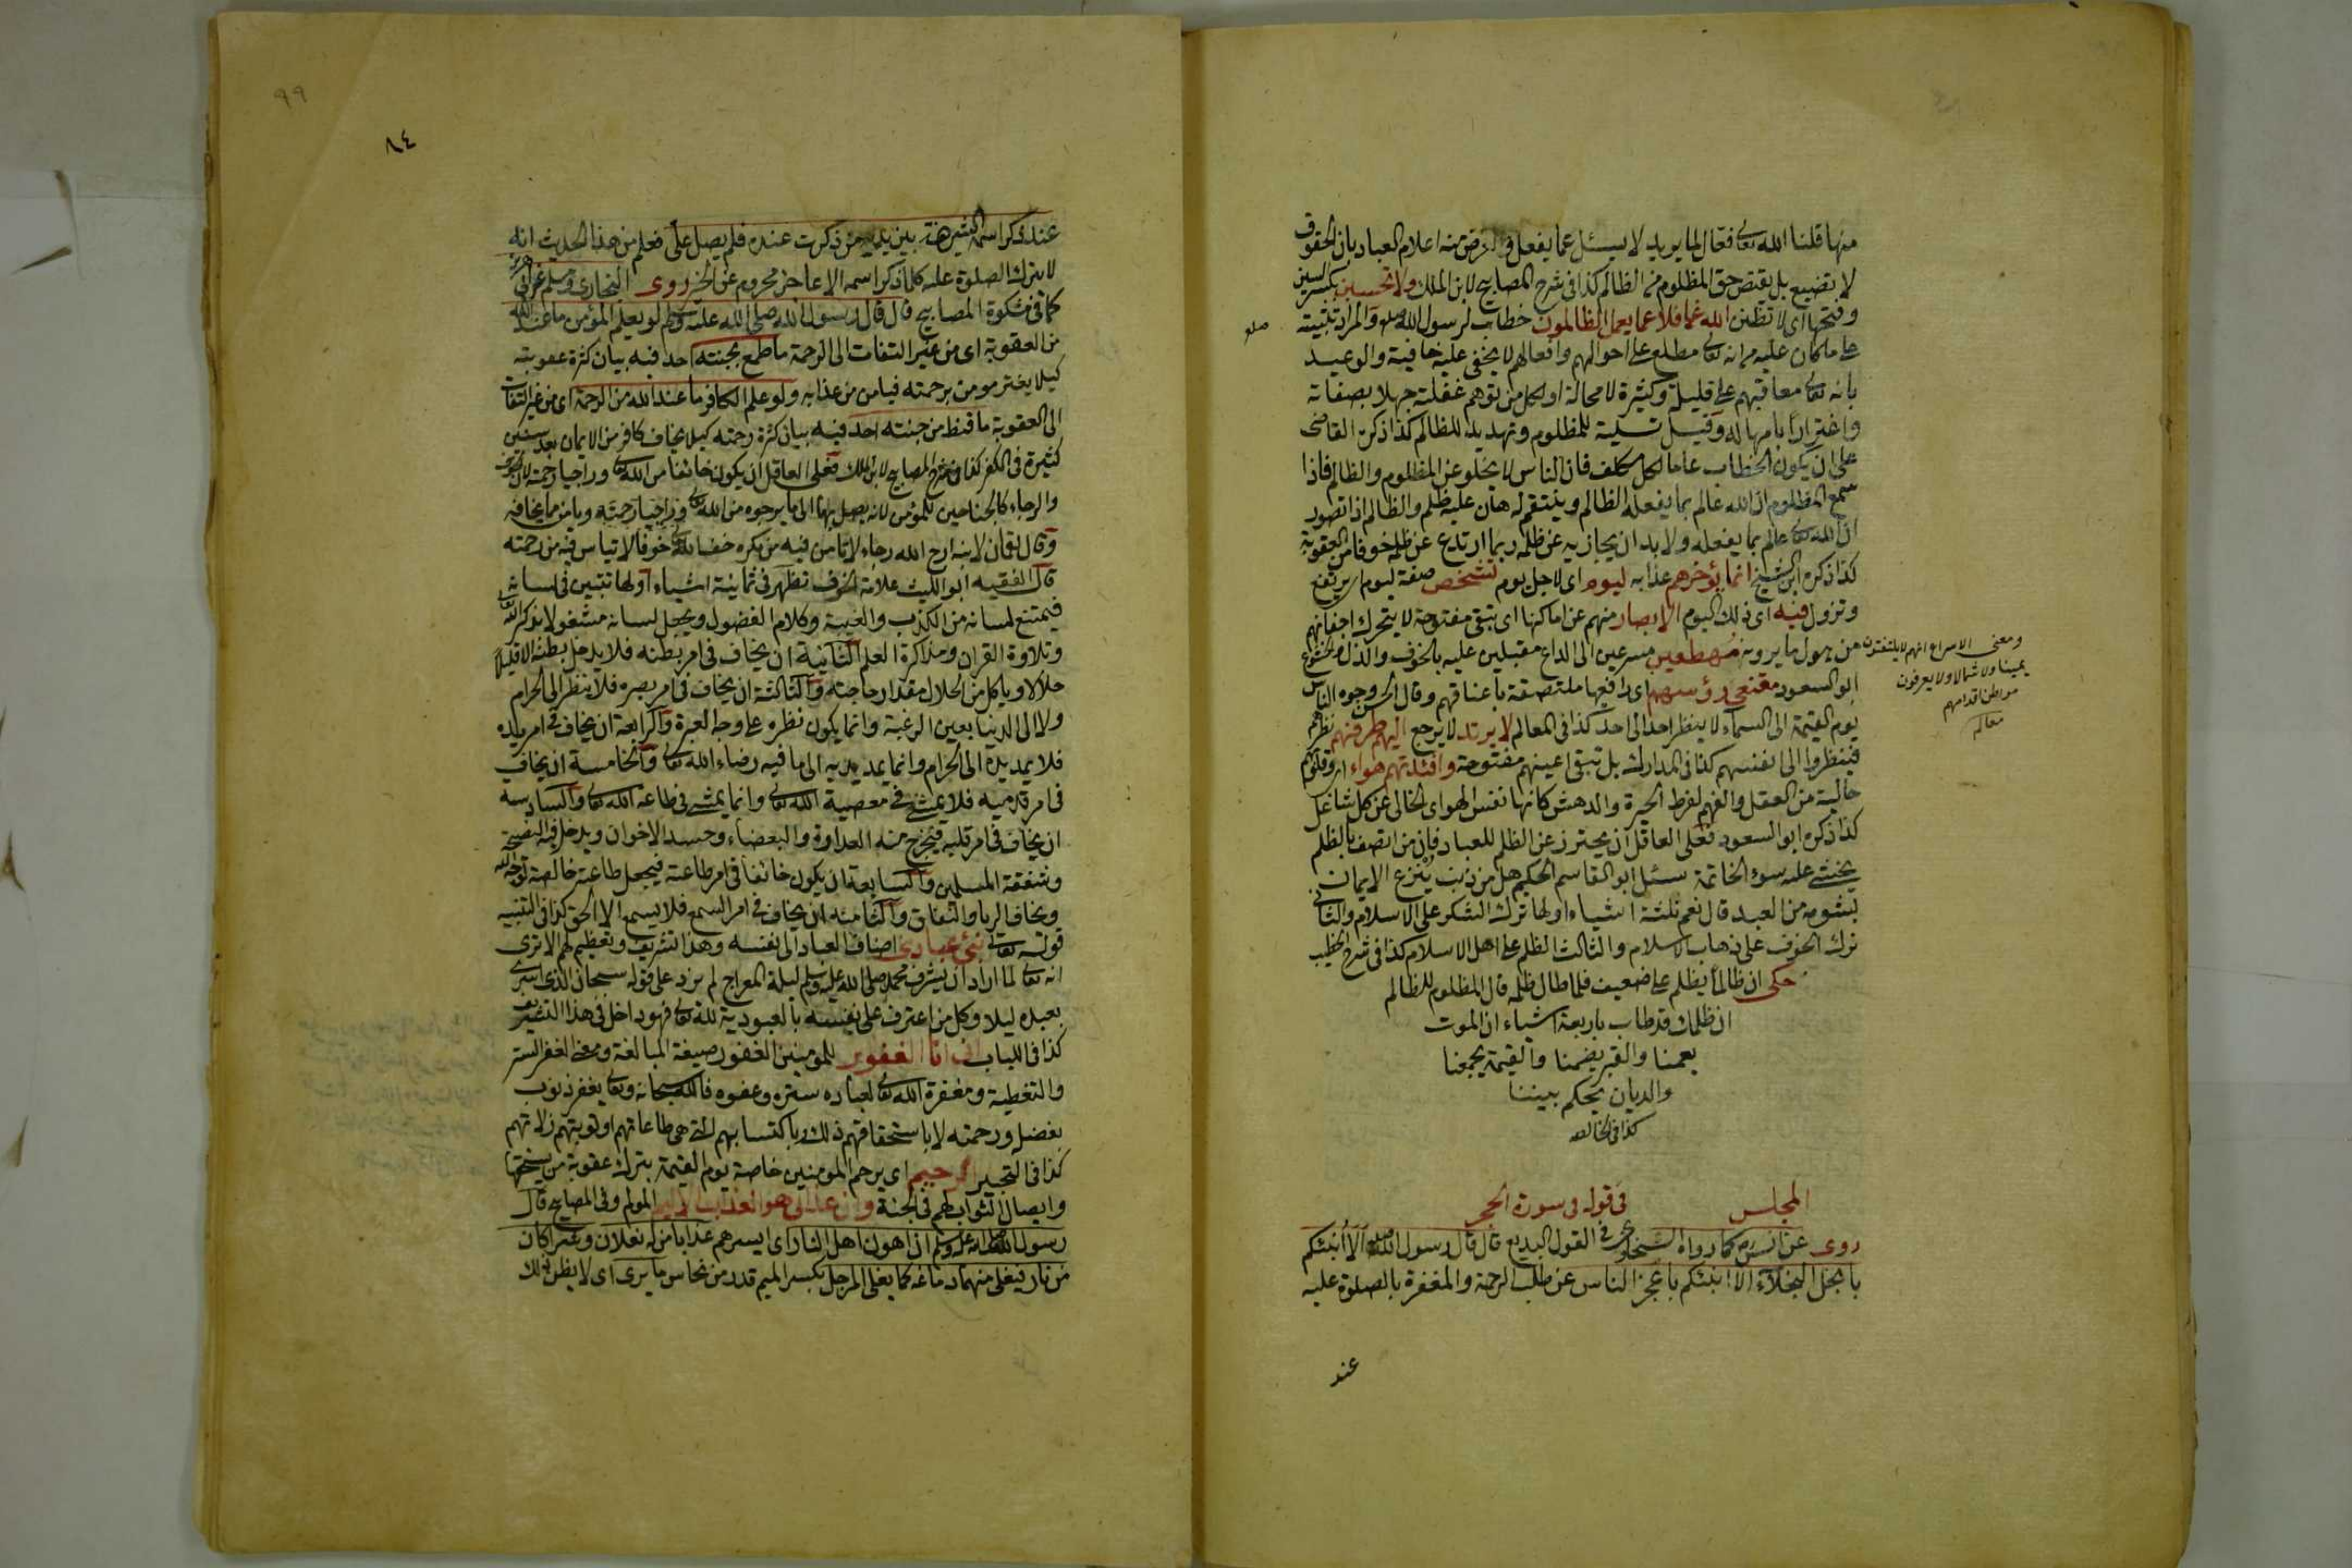 منها قلنا الله تعالى فعال لما يريد لا يسئل عما يفعل والغرض منه اعلام العباد بان الحقوق
لا تضيع بل يقتص حق المظلوم من الظالم كذا في شرح المصابيح لابن الملك ولا تحسبن بكسر السين
وفتحها اى لا تظنن الله غافلا عما يعمل الظالمون خطاب لرسول الله صلعم والمراد تثبيته
على ما كان عليه من انه تعالى مطلع على احوالهم وافعالهم لا يخفى عليه خافية والوعيد
بانه تعالى معاقبهم على قليله وكثيره لا محالة او لكل من توهم غفلته جهلا بصفاته
واغترارا بامهاله وقيل تسلية للمظلوم وتهديد للظالم كذا ذكره القاضى
على ان يكون الخطاب عاما لكل مكلف فان الناس لا يخلو عن المظلوم والظالم فاذا
سمع المظلوم ان الله عالم بما يفعله الظالم وينتقم له هان عليه ظلمه والظالم اذا تصور
ان الله تعالى عالم بما يفعله ولا بد ان يجازيه عن ظلمه ربما ارتدع عن ظلمه خوفا من العقوبة
كذا ذكره ابن الشيخ انما يؤخرهم عذابه ليوم اى لاجل يوم تشخص صفة ليوم اى يرتفع
وتزول فيه اى في ذلك اليوم الابصار منهم عن اماكنها اى تبقى مفتوحة لا يتحرك اجفانهم
من هول ما يرونه مهطعين مسرعين الى الداع مقبلين عليه بالخوف والذل والخشوع
ابو السعود مقنعى رؤسهم اى رافعيها ملتصقة باعناقهم وقال الحسن وجوه الناس
يوم القيمة الى السماء لا ينظر احد الى احد كذا فى المعالم لا يرتد لا يرجع اليهم طرفهم نظرهم
فينظروا الى انفسهم كذا فى المدارك بل تبقى اعينهم مفتوحة وافئدتهم هواء اى وقلوبهم
خالية من العقل والفهم لفرط الحيرة والدهش كانها نفس الهواء الخالى عن كل شاغل
كذا ذكره ابو السعود فعلى العاقل ان يحترز عن الظلم للعباد فان من اتصف بالظلم
يخشى عليه سوء الخاتمة سئل ابو القاسم الحكيم هل من ذنب ينزع الايمان
بشومه من العبد قال نعم ثلثة اشياء اولها ترك الشكر على الاسلام والثانى
ترك الخوف على ذهاب الاسلام والثالث الظلم على اهل الاسلام كذا فى شرح الخطيب
حكى ان ظالما يظلم على ضعيف فلما طال ظلمه قال المظلوم للظالم
ان ظلمك قد طاب باربعة اشياء ان الموت
يعمنا والقبر يضمنا والقيمة يجمعنا
والديان يحكم بيننا
كذا فى الخالصة
ومعنى الاسراع انهم لا يلتفتون
يمينا ولا شمالا ولا يعرفون
مواطن اقدامهم
معالم
صلعم
المجلس فى قوله فى سورة الحجر
روى عن انس رض كما رواه السخاوى فى القول البديع قال قال رسول الله صلعم الا انبئكم
بابخل البخلاء الا انبئكم باعجز الناس عن طلب الرحمة والمغفرة بالصلوة عليه
عند
٩٩
٨٤
عند ذكر اسمه الشريف بين يديه من ذكرت عنده فلم يصل على فعلم من هذا الحديث انه
لا يترك الصلوة عليه كلما ذكر اسمه الا عاجز محروم عن الخير روى البخارى ومسلم عن ابى هريرة
كما فى مشكوة المصابيح قال قال رسول الله صلى الله عليه وسلم لو يعلم المؤمن ما عند الله
من العقوبة اى من غير التفات الى الرحمة ما طمع بجنته احد فيه بيان كثرة عقوبته
كيلا يغتر مومن برحمته فيامن من عذابه ولو علم الكافر ما عند الله من الرحمة اى من غير التفات
الى العقوبة ما قنط من جنته احد فيه بيان كثرة رحمته كيلا يخاف كافر من الايمان بعد سنين
كثيرة فى الكفر كذا فى شرح المصابيح لابن الملك فعلى العاقل ان يكون خائفا من الله تعالى وراجيا رحمته لان الخوف
والرجاء كالجناحين للمؤمن لانه يصل بهما الى ما يرجوه من الله تعالى وراجيا رحمته ويامن ما يخافه
وقال لقمان لابنه ارج الله رجاء لا تامن فيه من مكره خف الله تعالى خوفا لا تياس فيه من رحمته
قال الفقيه ابو الليث علامة الخوف تظهر فى ثمانية اشياء اولها تتبين فى لسانه
فيمتنع لسانه من الكذب والغيبة وكلام الفضول ويجعل لسانه مشغولا بذكر الله
وتلاوة القران ومذاكرة العلم الثانية ان يخاف فى امر بطنه فلا يدخل بطنه الا قليلا
حلالا وياكل من الحلال مقدار حاجته والثالثة ان يخاف فى امر بصره فلا ينظر الى الحرام
ولا الى الدنيا بعين الرغبة وانما يكون نظره على وجه العبرة والرابعة ان يخاف فى امر يده
فلا يمد يده الى الحرام وانما يمد يديه الى ما فيه رضاء الله تعالى والخامسة ان يخاف
فى امر قدميه فلا يمشى فى معصية الله تعالى وانما يمشى فى طاعة الله تعالى والسادسة
ان يخاف فى امر قلبه فيخرج منه العداوة والبغضاء وحسد الاخوان ويدخل فيه النصيحة
وشفقة المسلمين والسابعة ان يكون خائفا فى امر طاعته فيجعل طاعته خالصة لوجه الله
ويخاف الريا والنفاق والثامنة ان يخاف فى امر السمع فلا يسمع الا الحق كذا فى التنبيه
قوله تعالى نبئ عبادى اضاف العباد الى نفسه وهذا تشريف وتعظيم لهم الا ترى
انه تعالى لما اراد ان يشرف محمدا صلى الله عليه وسلم ليلة المعراج لم يزد على قوله سبحان الذى اسرى
بعبده ليلا وكل من اعترف على نفسه بالعبودية لله تعالى فهو داخل فى هذا التشريف
كذا فى اللباب انى انا الغفور للمومنين الغفور صيغة المبالغة ومعنى الغفر الستر
والتغطية ومغفرة الله تعالى لعباده ستره وعفوه فالله سبحانه وتعالى يغفر ذنوب
بفضله ورحمته لا باستحقاقهم ذلك باكتسابهم التى هى طاعاتهم او توبتهم زلاتهم
كذا فى التحبير الرحيم اى يرحم المومنين خاصة يوم القيمة بترك عقوبة من يستحقها
وايصال الثواب لهم فى الجنة وان عذابى هو العذاب الاليم المولم وفى المصابيح قال
رسول الله صلى الله عليه وسلم ان اهون اهل النار اى ايسرهم عذابا من له نعلان وشراكان
من نار فيغلى منهما دماغه كما يغلى المرجل بكسر الميم قدر من نحاس ما يرى اى لا يظن ذلك